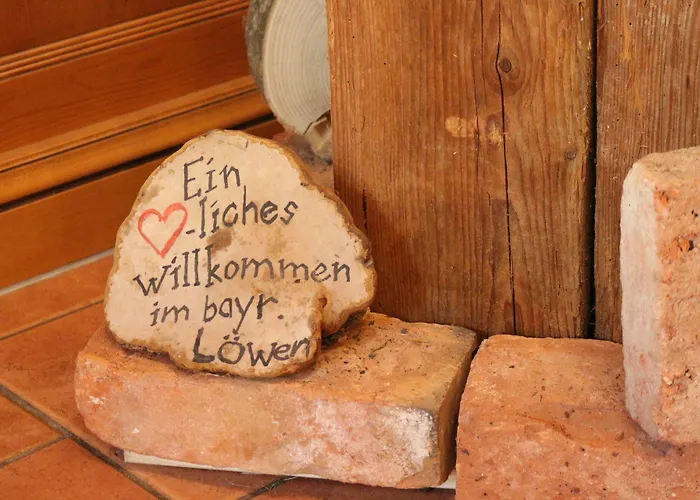 Ein
♡-liches
willkommen
im bayr.
Löwen